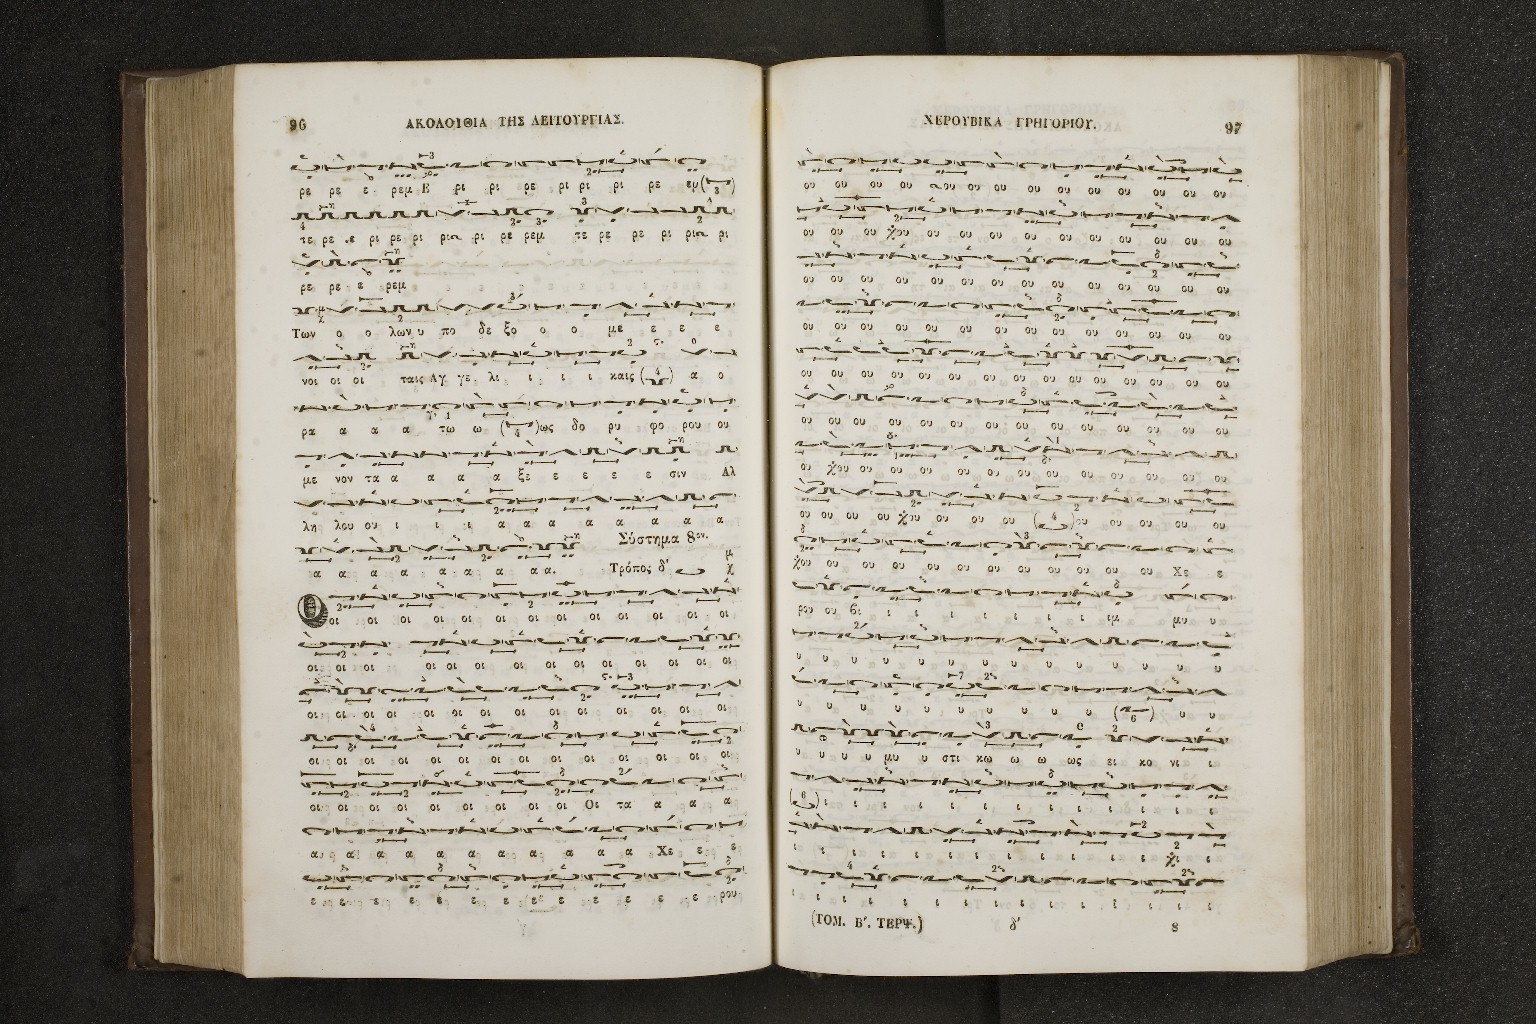 96 ΑΚΟΛΟΥΘΙΑ ΤΗΣ ΛΕΙΤΟΥΡΓΙΑΣ.
ρε ρε ε ρεμ Β ρι ρι ρε ρι ρι ρι ρε εμ
τε ρε ε ρι ρε ρι ρι ρι ρε ρεμ τε ρε ρε ρι ρι ρι
ρε ρε ε ρεμ
Των ο ο λων υ πο δε ξο ο ο με ε ε ε
νοι οι οι ταις Αγ γε λι ι ι ι καις α ο
ρα α α α τω ω ως δο ρυ φο ρου ου
με νον τα α α α α ξε ε ε ε ε σιν Αλ
λη λου ου ι ι ι α α α α α α α α
Σύστημα 8ον.
α α α α α α α α α. Τρόπος δ'
Οι οι οι οι οι οι οι οι οι οι οι οι οι
οι οι οι οι οι οι οι οι οι οι οι οι οι
οι οι οι οι οι οι οι οι οι οι οι οι οι
οι οι οι οι οι οι οι οι οι οι οι οι οι
οι οι οι οι οι οι οι οι οι Οι τα α α α
α α α α α α α α α α α Χε ε ε
ε ε ε ε ε ε ε ε ε ε ε ε ε ρου
ΧΕΡΟΥΒΙΚΑ ΓΡΗΓΟΡΙΟΥ. 97
ου ου ου ου ου ου ου ου ου ου ου ου ου ου
ου ου ου χου ου ου ου ου ου ου ου ου ου ου
ου ου ου ου ου ου ου ου ου ου ου ου ου ου
ου ου ου ου ου ου ου ου ου ου ου ου ου ου
ου ου ου ου ου ου ου ου ου ου ου ου ου ου ου
ου ου ου ου ου ου ου ου ου ου ου ου ου ου
ου χου ου ου ου ου ου ου ου ου ου ου ου ου
ου ου ου ου χου ου ου ου ου ου ου ου ου
χου ου ου ου ου ου ου ου ου ου ου ου Χε ε
ρου ου βι ι ι ι ι ι ι ι ιμ μυ υ
υ υ υ υ υ υ υ υ υ υ υ υ υ υ
υ υ υ υ υ υ υ υ υ υ υ υ
υ υ υ υ μυ υ στι κω ω ω ως ει κο νι ι
ι ι ι ι ι ι ι ι ι ι ι ι ι
ι ι ι ι ι ι ι ι ι ι ι ι χι ι
ι ι ι ι ι ι ι ι ι ι ι ι ι ι
(ΤΟΜ. Β'. ΤΕΡΨ.) δ' 8